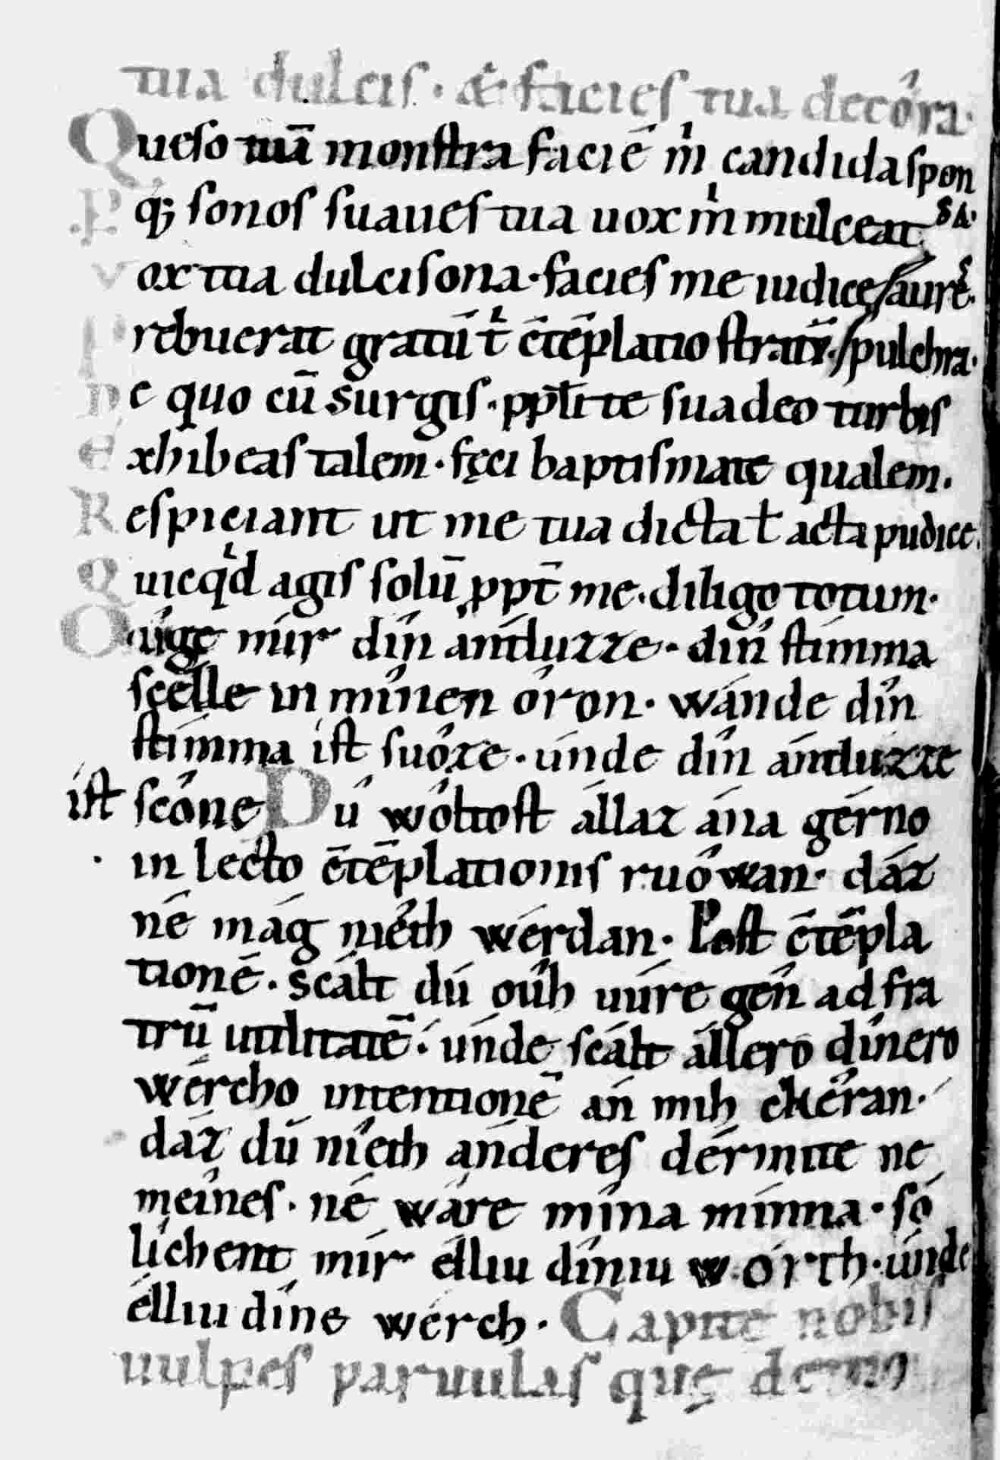 tua dulcis · & facies tua decóra·
Queso tuā monstra faciē m̍ candida spon
sa·
P̲ q; sonos suaues tua uox m̍ mulceat
Vox tua dulcisona· facies me iudice /aurē·
Prebuerat gratū t̍ c̄tēplatio stratū· /pulchra·
De quo cū surgis· ꝓpt̄ te suadeo turbis
Exhibeas talem· fęci baptismate qualem·
Respiciant ut me tua dicta ł acta pudice·
Quicq̍d agis solū ꝓpt̄ me· diligo totum·
Oúge mír dín ántluzze· dín stímma
scélle in mínen óron· wánde dín
stímma ist suóze· únde dín ántluzze
ist scóne Dú wóltost állaz ána gérno
in lecto c̄tēplationis ruówan· dáz
né mág niéth wérdan· Post c̄tēpla
tionē· scált dú oúh uúre gén ad fra
trū utilitatē· únde scált állero dínero
wércho intentionē án mih ekéran·
dáz dú niéth ánderes dérmite ne
meínes· né wáre mína mínna· só
líchent mír élliu díniu wórth· únde
élliu díne wérch· Capite nobis
uulpes paruulas quę demo